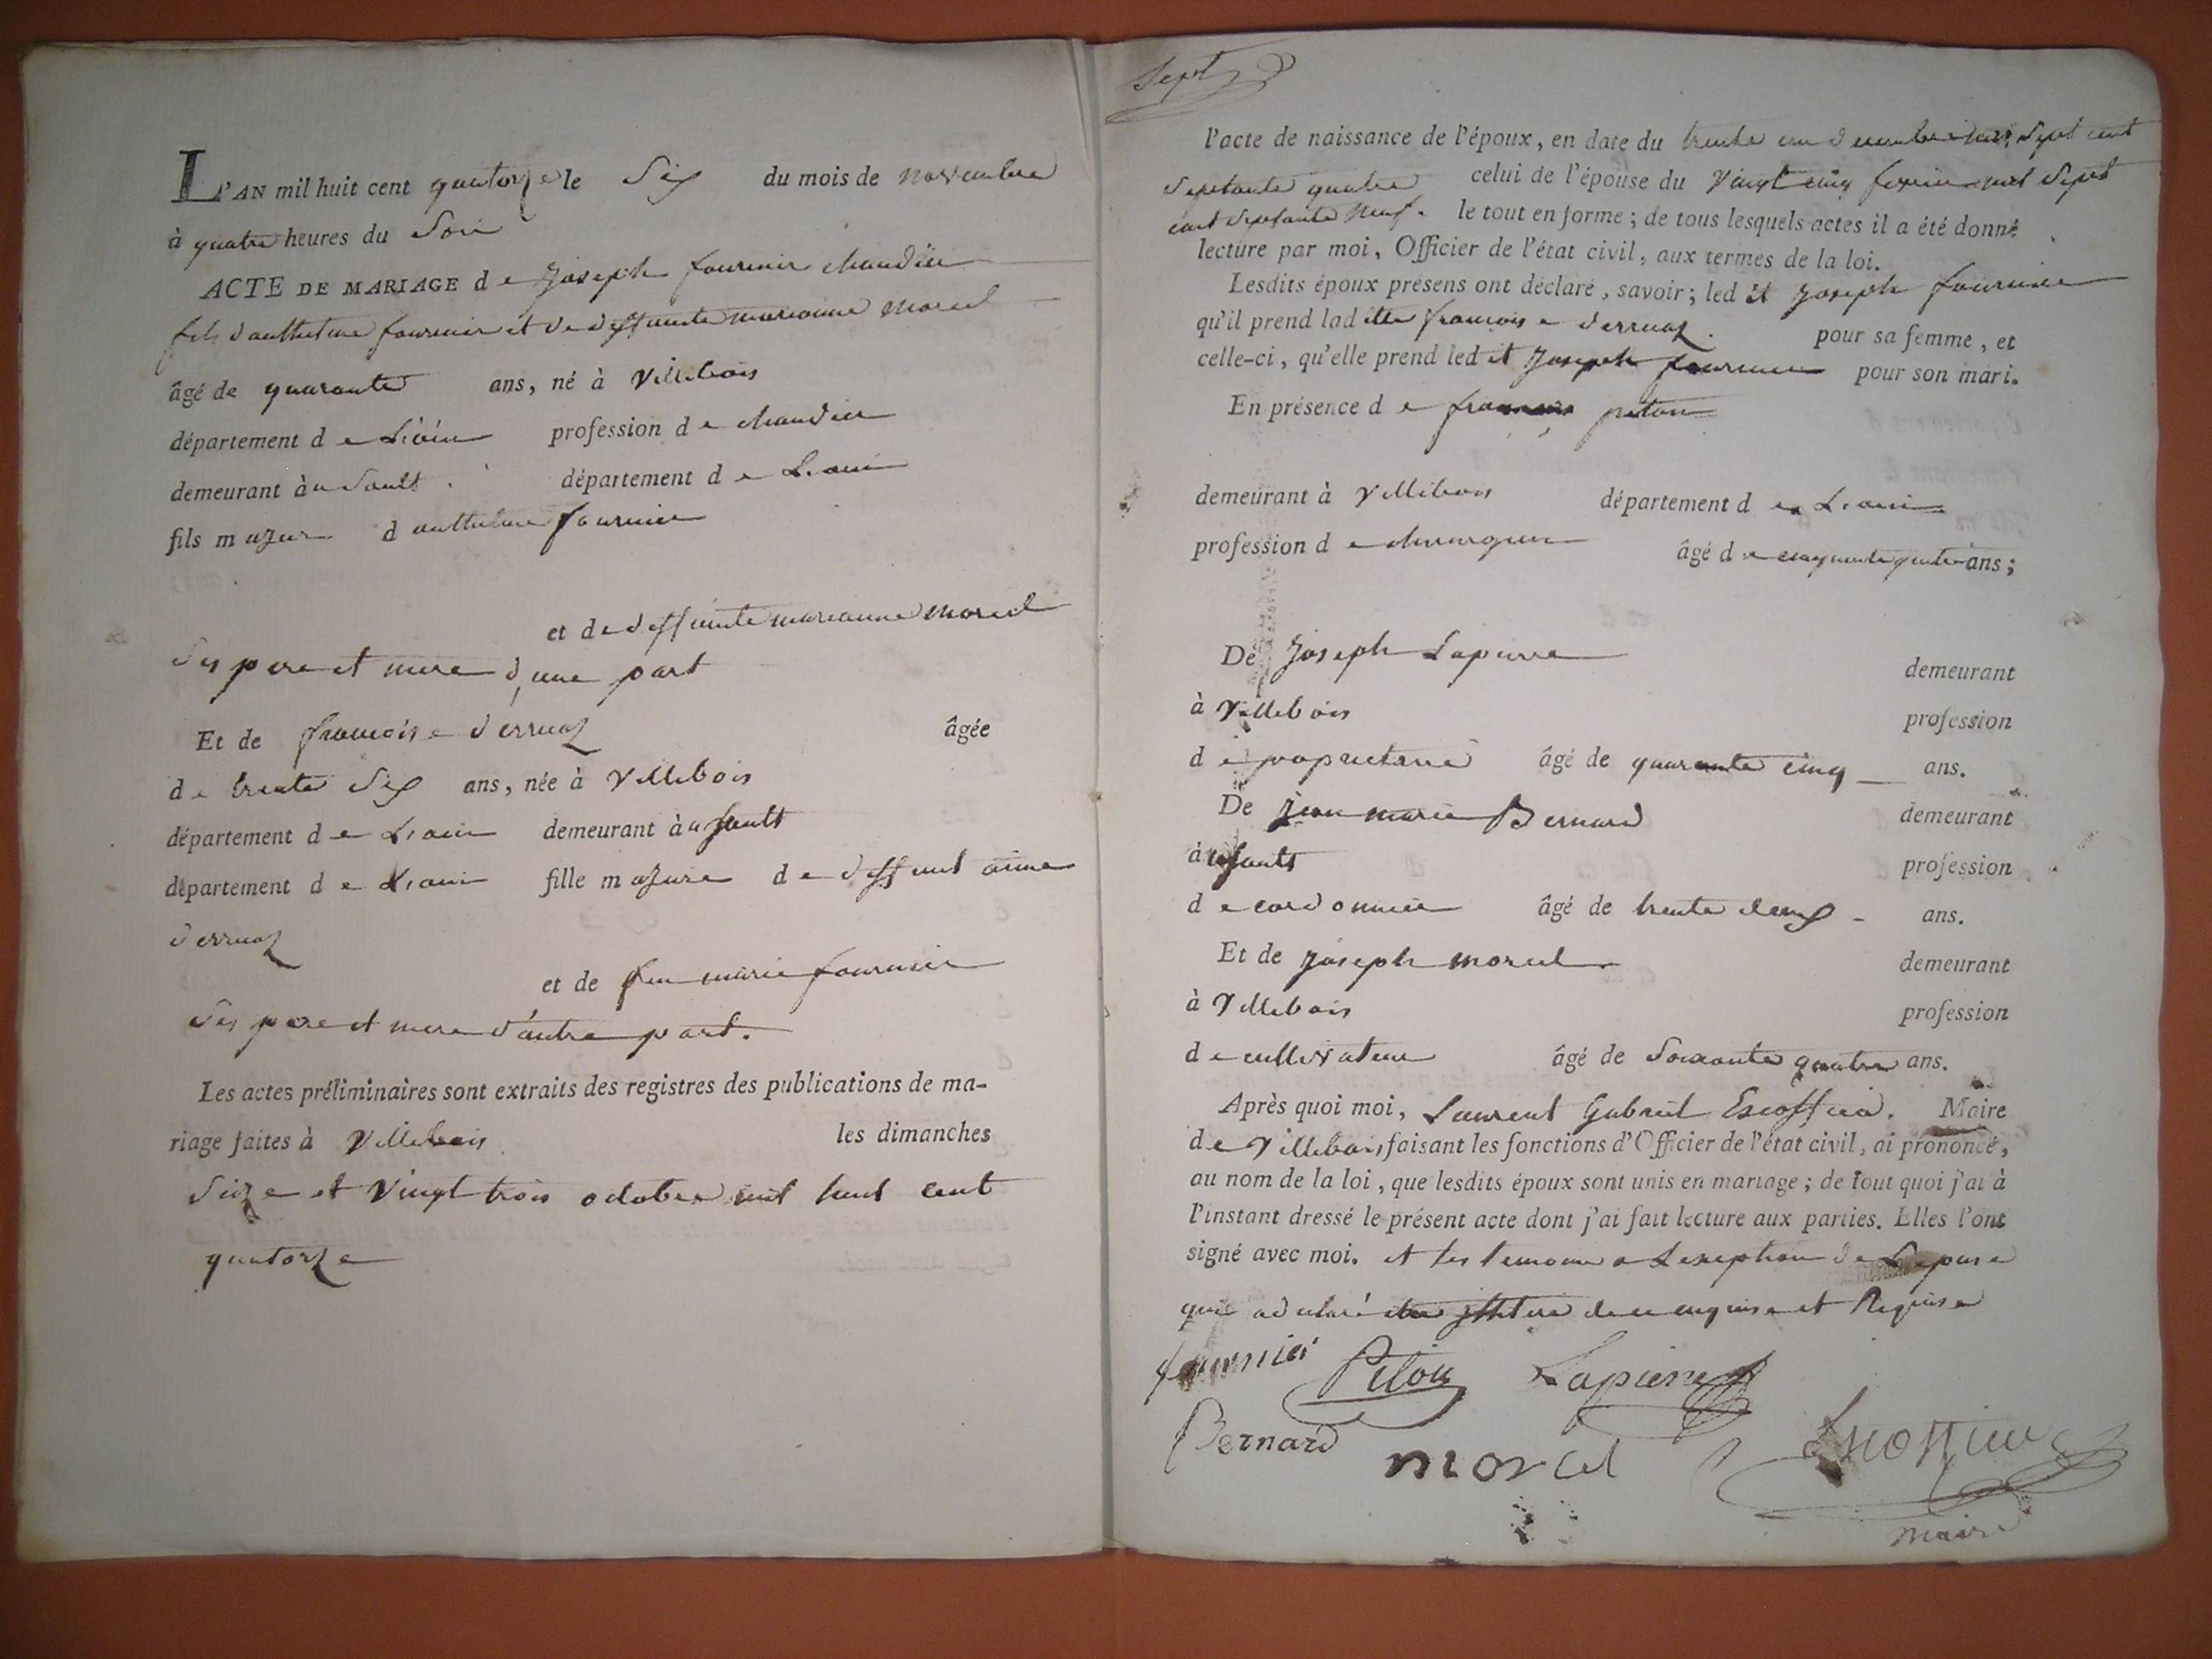 L'AN mil huit cent quatorze le Six du mois de novembre
à quatre heures du Soir
ACTE DE MARIAGE d e Joseph fournier chaudier
fils d'anthelme fournier et de deffunte marianne morel
âgé de quarante ans, né à Villebois
département d e L'ain profession d e chaudier
demeurant à u Sault département d e L'ain
fils majeur d'anthelme fournier
et de deffunte marianne morel
Ses pere et mere d'une part
Et de françoise derruaz âgée
de trente Six ans, née à Villebois
département d e L'ain demeurant à u Sault
département d e L'ain fille majeure de deffunt aimé
derruaz
et de feu marie fournier
Ses pere et mere d'autre part.
Les actes préliminaires sont extraits des registres des publications de ma-
riage faites à Villebois les dimanches
Seize et Vingt trois octobre mil huit cent
quatorze
Sept
l'acte de naissance de l'époux, en date du trente un décembre mil Sept cent
Septante quatre celui de l'épouse du Vingt cinq fevrier mil Sept
cent Septante neuf. le tout en forme ; de tous lesquels actes il a été donné
lecture par moi, Officier de l'état civil, aux termes de la loi.
Lesdits époux présens ont déclaré, savoir ; led it Joseph fournier
qu'il prend lad itte françoise derruaz. pour sa femme, et
celle-ci, qu'elle prend led it Joseph fournier pour son mari.
En présence d e françois piton
demeurant à Villebois département d e L'ain
profession d e chirurgien âgé d e cinquante quatre ans ;
De Joseph Lapierre demeurant
à Villebois profession
d e propriétaire âgé de quarante cinq ans.
De jean marie Bernard demeurant
à u Sault profession
d e cordonnier âgé de trente deux ans.
Et de Joseph morel demeurant
à Villebois profession
d e cultivateur âgé de Soixante quatre ans.
Après quoi moi, Laurent Gabriel Escoffier. Maire
de Villebois faisant les fonctions d'Officier de l'état civil, ai prononcé,
au nom de la loi, que lesdits époux sont unis en mariage ; de tout quoi j'ai à
l'instant dressé le présent acte dont j'ai fait lecture aux parties. Elles l'ont
signé avec moi. et les temoins a Lexeption de Lepouse
qui a declaré être illiterée de ce enquise et Requise
fournier Piton Lapierre
Bernard morel Escoffier
maire